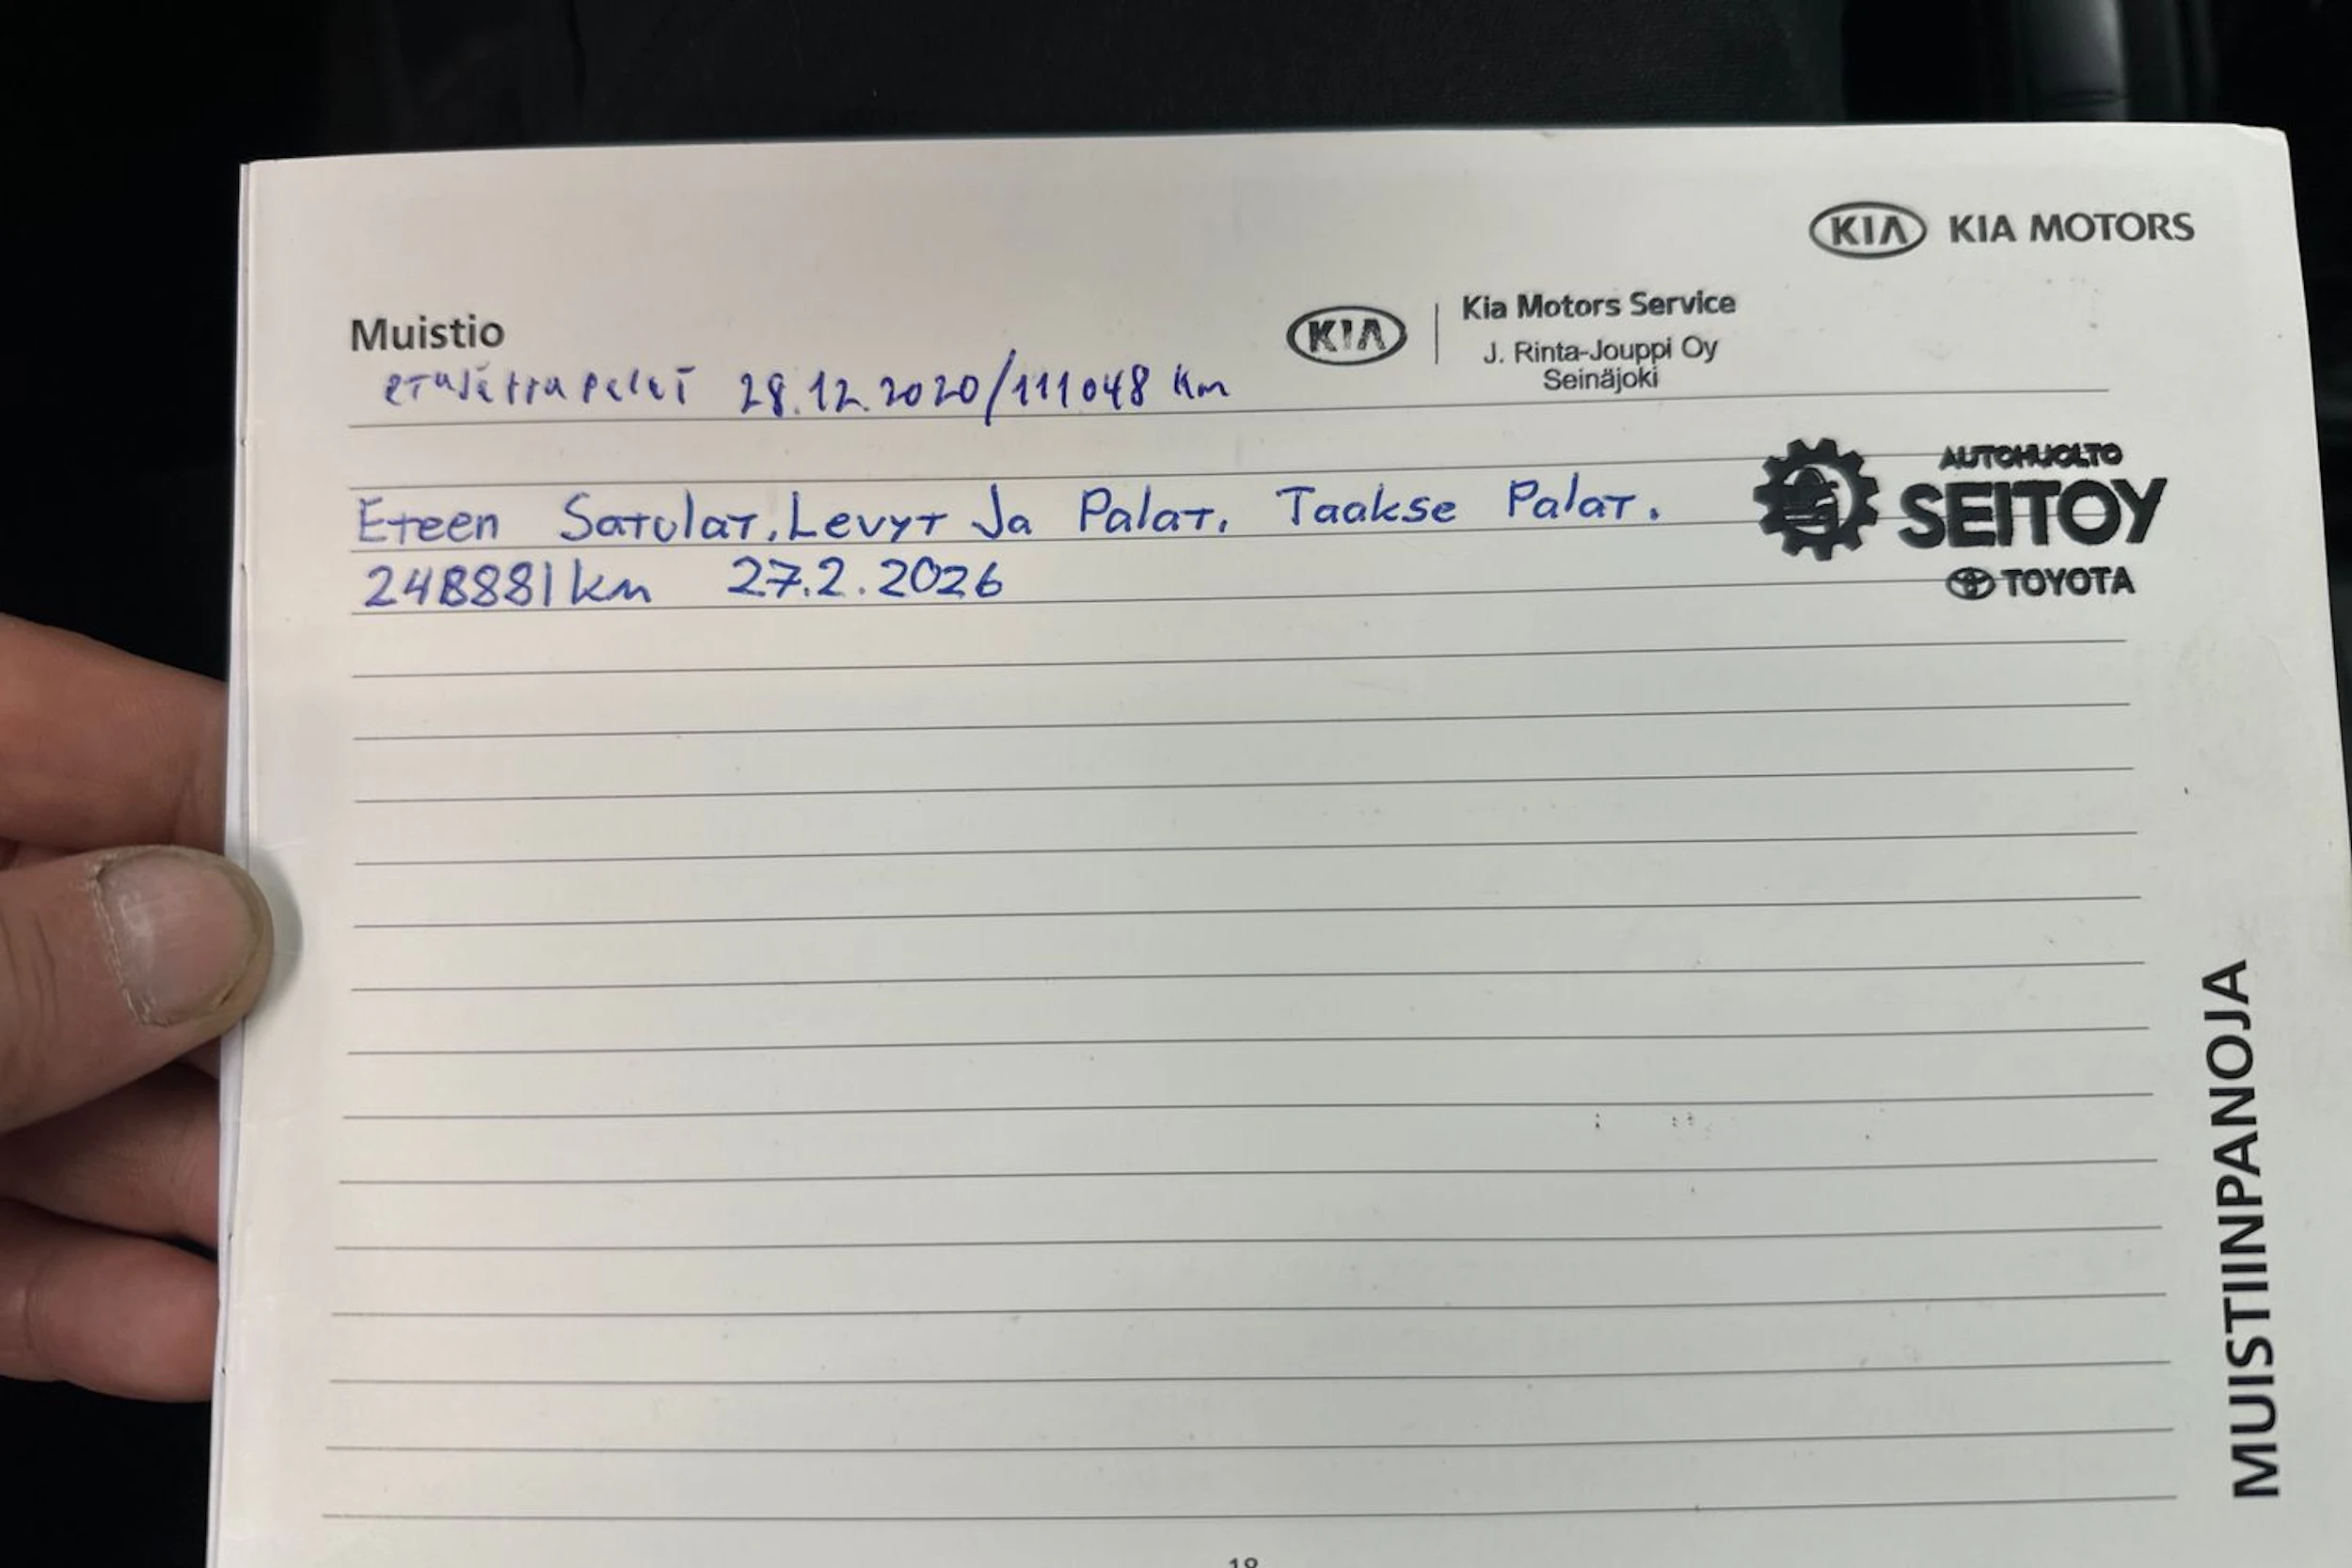 KIA KIA MOTORS
Muistio
KIA Kia Motors Service
J. Rinta-Jouppi Oy
Seinäjoki
etujarrupalat 28.12.2020/111048 km
AUTOHUOLTO
SEITOY
TOYOTA
Eteen Satulat, Levyt Ja Palat. Taakse Palat.
248881 km 27.2.2026
MUISTIINPANOJA